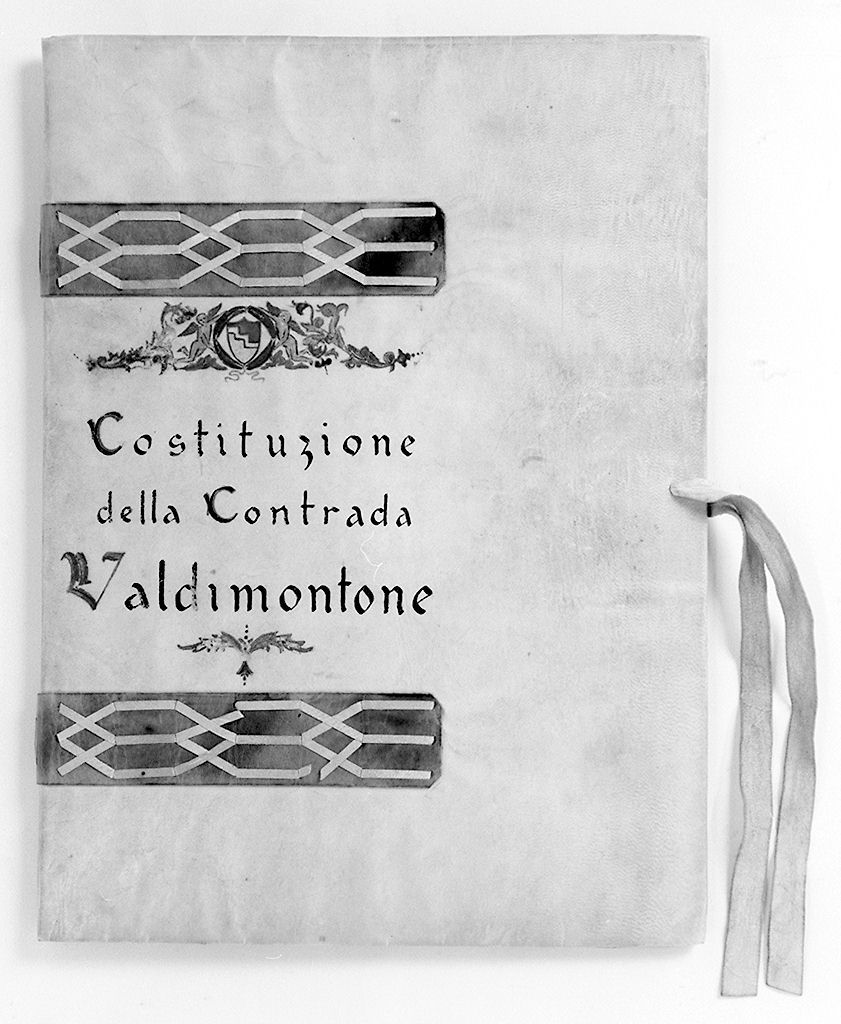 Costituzione
della Contrada
Valdimontone